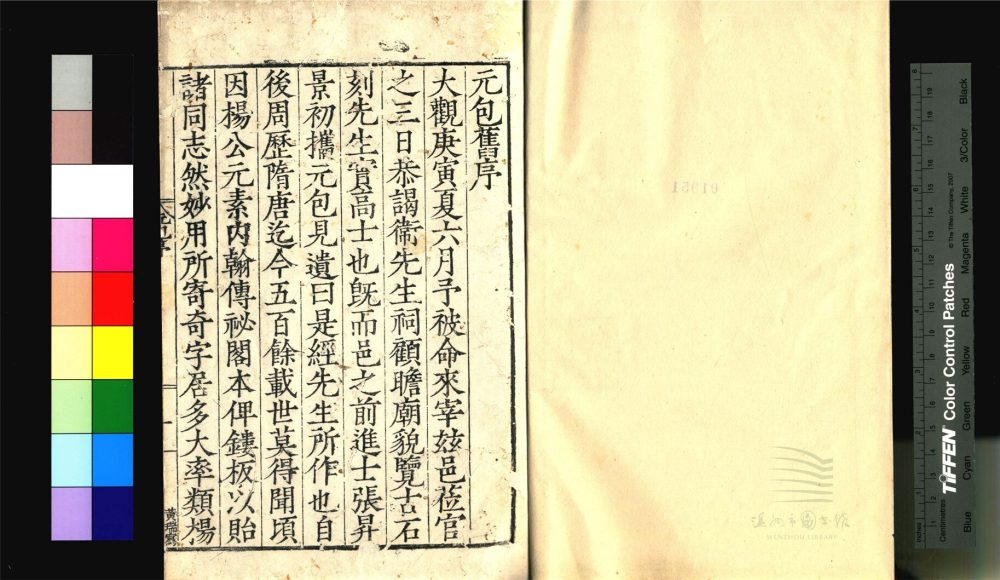 元包舊序
大觀庚寅夏六月予被命來宰玆邑蒞官
之三日恭謁衞先生祠顧瞻廟貌覽古石
刻先生實高士也旣而邑之前進士張昇
景初攜元包見遺曰是經先生所作也自
後周歷隋唐迄今五百餘載世莫得聞頃
因楊公元素内翰傳祕閣本俾鏤板以貽
諸同志然妙用所寄奇字居多大率類揚
黃瑞
91951
温州市圖書館
WENZHOU LIBRARY
TIFFEN Color Control Patches
© The Tiffen Company, 2007
Inches
Centimetres
Blue Cyan Green Yellow Red Magenta White 3/Color Black